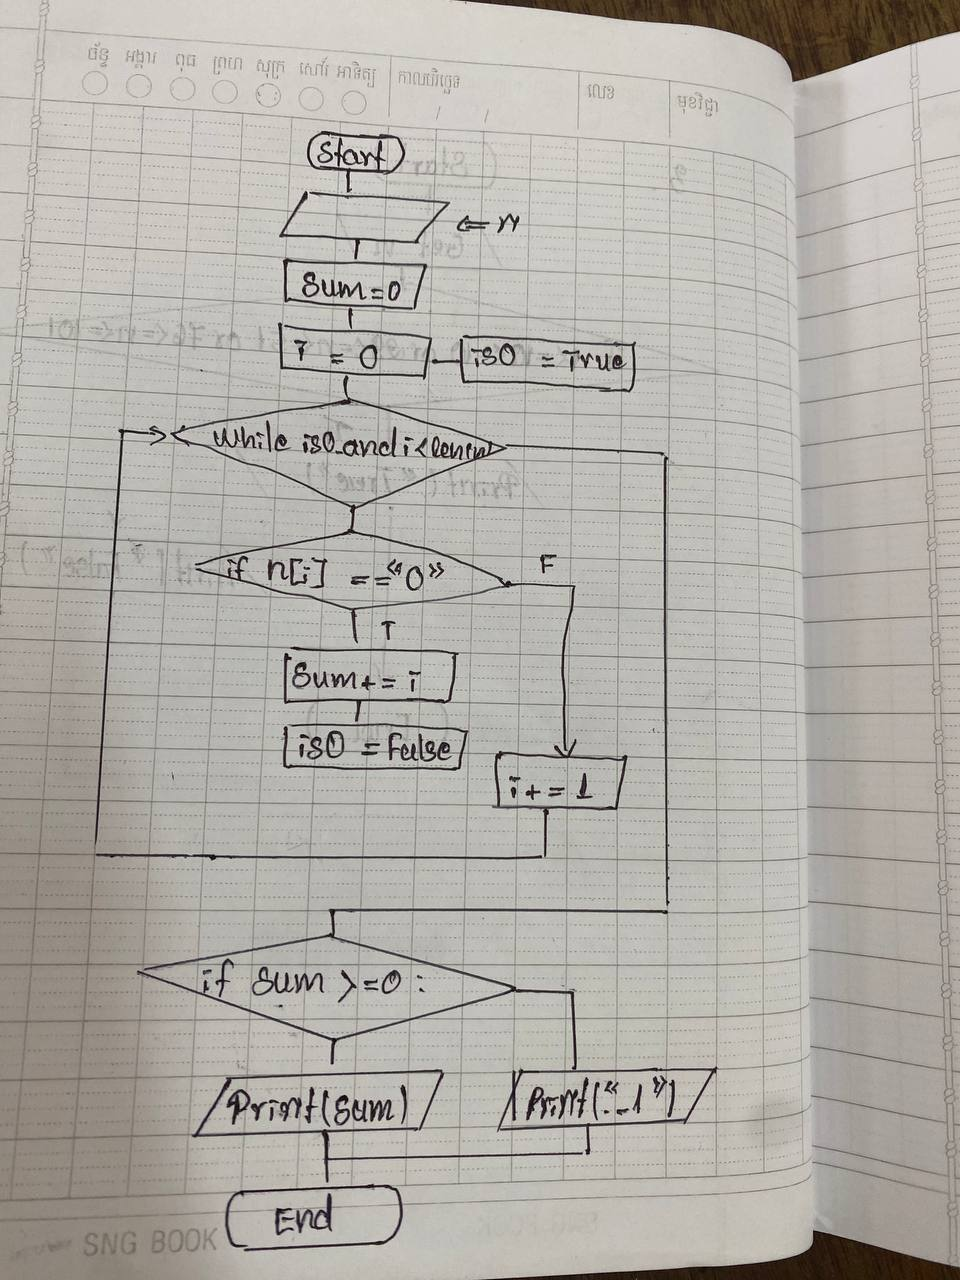 ច័ន្ទ អង្គារ ពុធ ព្រហ សុក្រ សៅរ៍ អាទិត្យ
កាលបរិច្ឆេទ
លេខ
មុខវិជ្ជា
Start
⇐ n
Sum=0
i = 0
is0 = True
while is0 and i<len(n
if n[i] == "0"
F
T
Sum+= i
is0 = False
i+= 1
if Sum >=0 :
Print(Sum)
Print("-1")
End
SNG BOOK